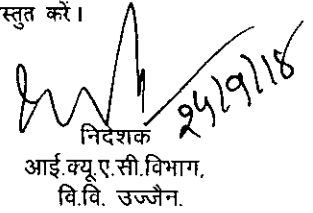 स्तुत करें।
24/9/18
निदेशक
आई.क्यू.ए.सी.विभाग,
वि.वि. उज्जैन.